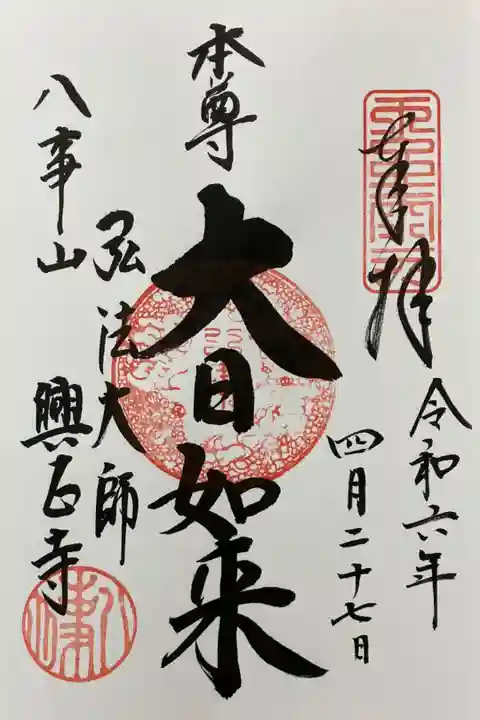 奉拝
令和六年
四月二十七日
本尊
大日如来
弘法大師
八事山
興正寺